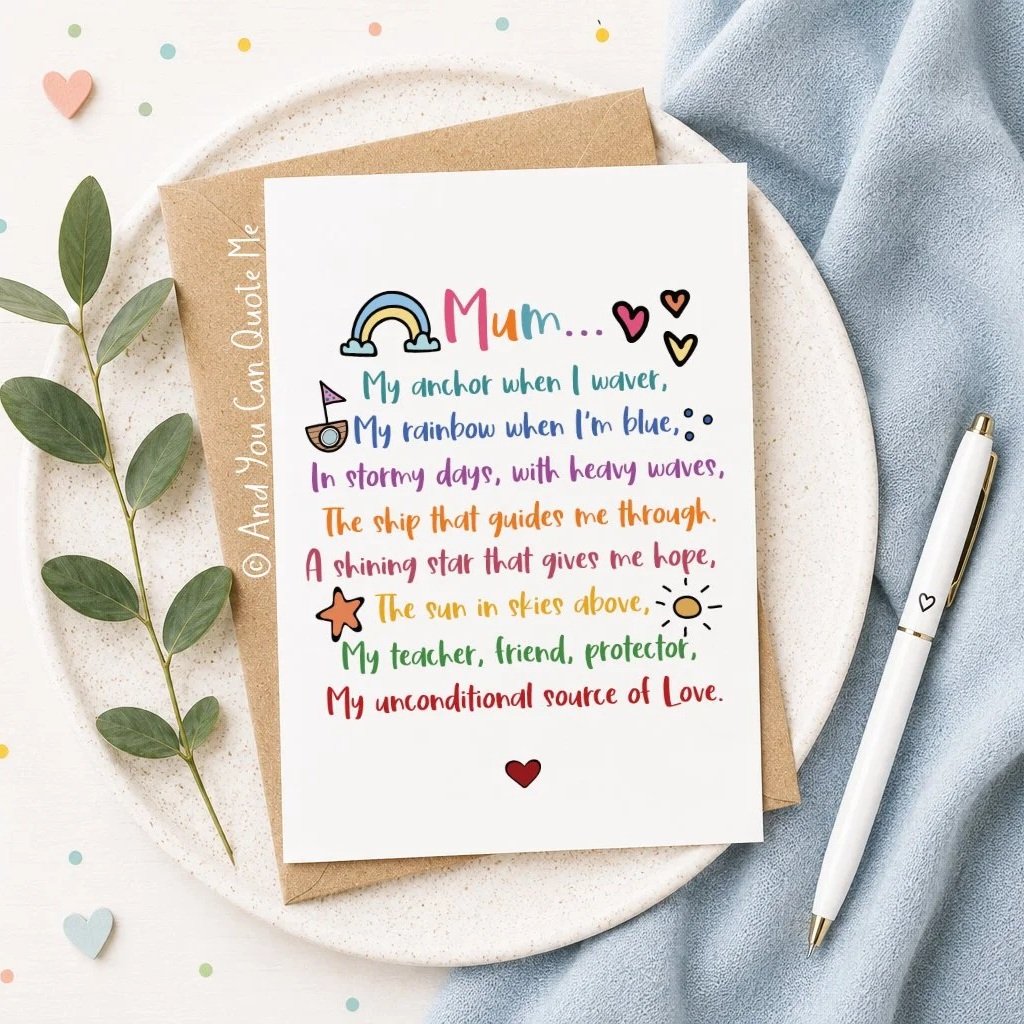 Mum...
My anchor when I waver,
My rainbow when I'm blue,
In stormy days, with heavy waves,
The ship that guides me through.
A shining star that gives me hope,
The sun in skies above,
My teacher, friend, protector,
My unconditional source of Love.
© And You Can Quote Me